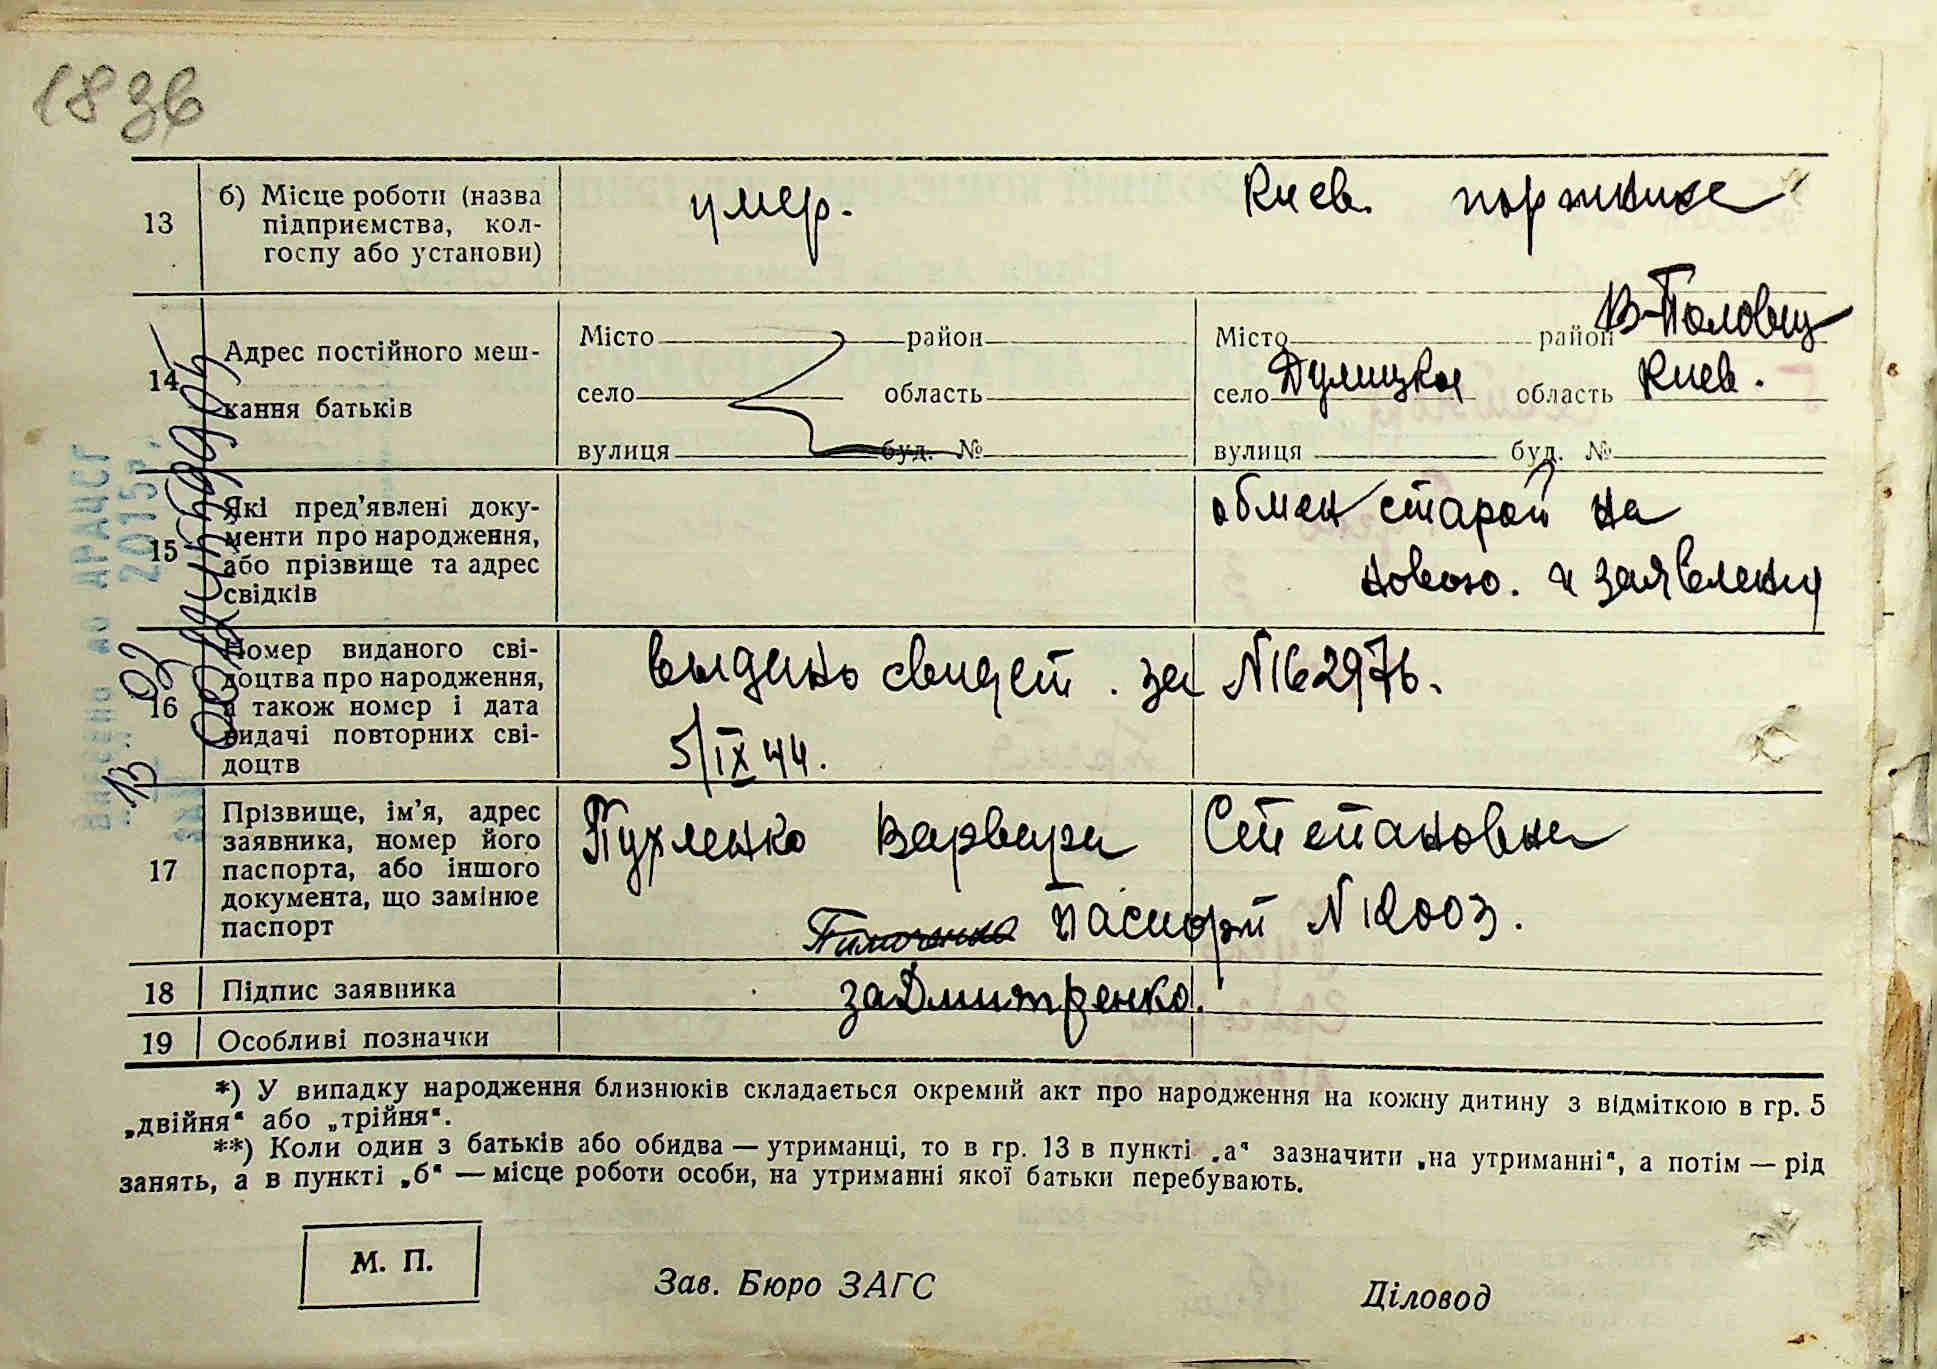 183б
13 б) Місце роботи (назва підприємства, кол-госпу або установи) умер. Киев.
14 Адрес постійного меш-кання батьків
Місто район
село область
вулиця буд. №
Місто район В-Половец
село Дулицкое область Киев.
вулиця буд. №
15 Які пред'явлені доку-менти про народження, або прізвище та адрес свідків
обмен старой на
новою. и заявления
16 Номер виданого сві-доцтва про народження, а також номер і дата видачі повторних сві-доцтв
выдано свидет. за №162976.
5/IX 44.
17 Прізвище, ім'я, адрес заявника, номер його паспорта, або іншого документа, що замінює паспорт
Пухленко Варвара Степановна
Паспорт №12003.
18 Підпис заявника за Дмитренко.
19 Особливі позначки
*) У випадку народження близнюків складається окремий акт про народження на кожну дитину з відміткою в гр. 5
„двійня" або „трійня".
**) Коли один з батьків або обидва — утриманці, то в гр. 13 в пункті „а" зазначити „на утриманні", а потім — рід
занять, а в пункті „б" — місце роботи особи, на утриманні якої батьки перебувають.
М. П.
Зав. Бюро ЗАГС
Діловод
ДРАЦСГ
2015р.